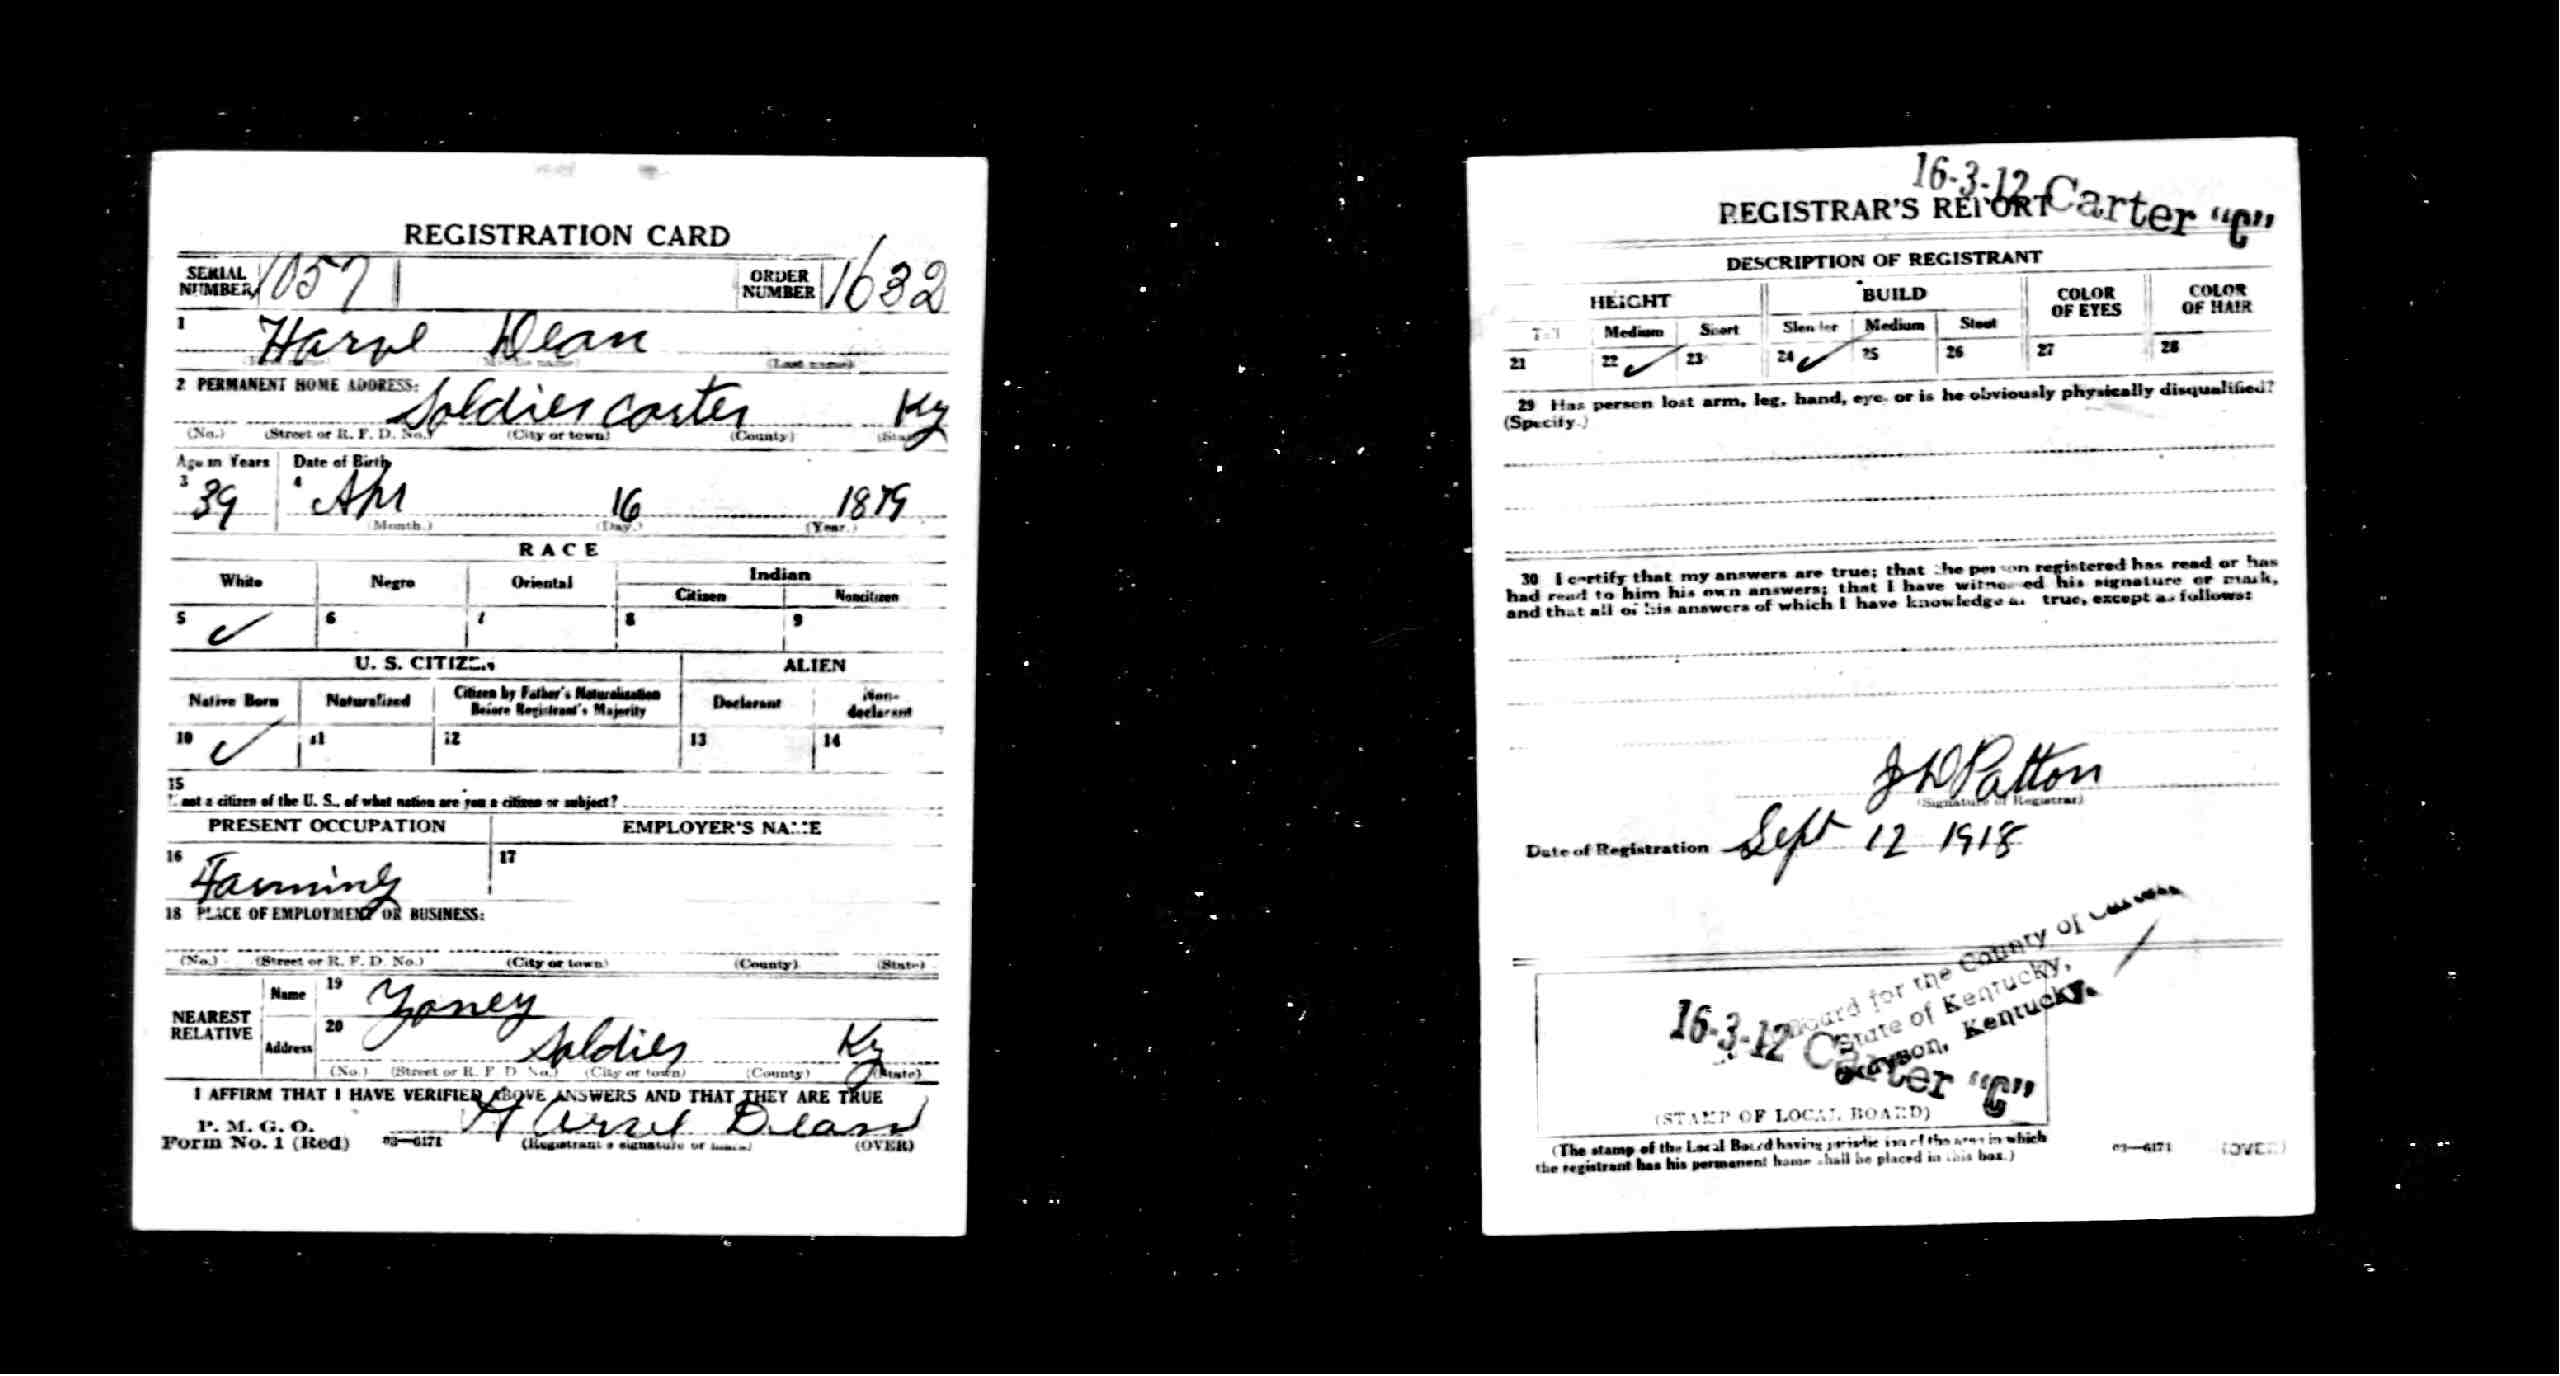 REGISTRATION CARD
SERIAL NUMBER 1057 ORDER NUMBER 1632
1 Harve Dean
(Last name)
2 PERMANENT HOME ADDRESS: Soldier Carter Ky
(No.) (Street or R. F. D. No.) (City or town) (County) (State)
Age in Years Date of Birth
3 39 4 Apr 16 1879
(Month.) (Day.) (Year.)
RACE
White Negro Oriental Indian
Citizen Noncitizen
5 ✓ 6 7 8 9
U. S. CITIZEN ALIEN
Native Born Naturalized Citizen by Father's Naturalization Before Registrant's Majority Declarant Non-declarant
10 ✓ 11 12 13 14
15
If not a citizen of the U. S., of what nation are you a citizen or subject?
PRESENT OCCUPATION EMPLOYER'S NAME
16 Farming 17
18 PLACE OF EMPLOYMENT OR BUSINESS:
(No.) (Street or R. F. D. No.) (City or town) (County) (State)
NEAREST RELATIVE Name 19 Yoney
Address 20 Soldier Ky
(No.) (Street or R. F. D. No.) (City or town) (County) (State)
I AFFIRM THAT I HAVE VERIFIED ABOVE ANSWERS AND THAT THEY ARE TRUE
P. M. G. O.
Form No. 1 (Red) 03—6171 Dean
(Registrant's signature or mark) (OVER)
16-3-12 Carter "C"
REGISTRAR'S REPORT
DESCRIPTION OF REGISTRANT
HEIGHT BUILD COLOR OF EYES COLOR OF HAIR
Tall Medium Short Slender Medium Stout
21 22 ✓ 23 24 ✓ 25 26 27 28
29 Has person lost arm, leg, hand, eye, or is he obviously physically disqualified?
(Specify.)
30 I certify that my answers are true; that the person registered has read or has
had read to him his own answers; that I have witnessed his signature or mark,
and that all of his answers of which I have knowledge are true, except as follows:
J D Patton
(Signature of Registrar)
Date of Registration Sept 12 1918
Board for the County of Carter
State of Kentucky,
Grayson, Kentucky.
16-3-12 Carter "C"
(STAMP OF LOCAL BOARD)
(The stamp of the Local Board having jurisdiction of the area in which
the registrant has his permanent home shall be placed in this box.)
03—6171 (OVER)